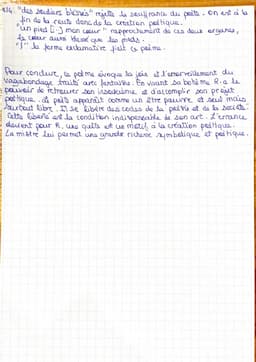 v14. "des souliers blessés" rejette la souffrance du poète. On est à la
fin de la route donc de la création poétique.
"un pied [...] mon cœur" rapprochement de ces deux organes,
le cœur aussi blessé que les pieds.
"!" la forme exclamative finit ce poème.
Pour conclure, ce poème évoque la joie et l'émerveillement du
vagabondage traité avec fantaisie. En vivant sa bohème R. a le
pouvoir de retrouver son insouciance et d'accomplir son projet
poétique. Le poète apparaît comme un être pauvre et seul mais
surtout libre. Il se libère des codes de la poésie et de la société.
Cette liberté est la condition indispensable de son art. L'errance
devient pour R. une quête et un motif à la création poétique.
La misère lui permet une grande richesse symbolique et poétique.